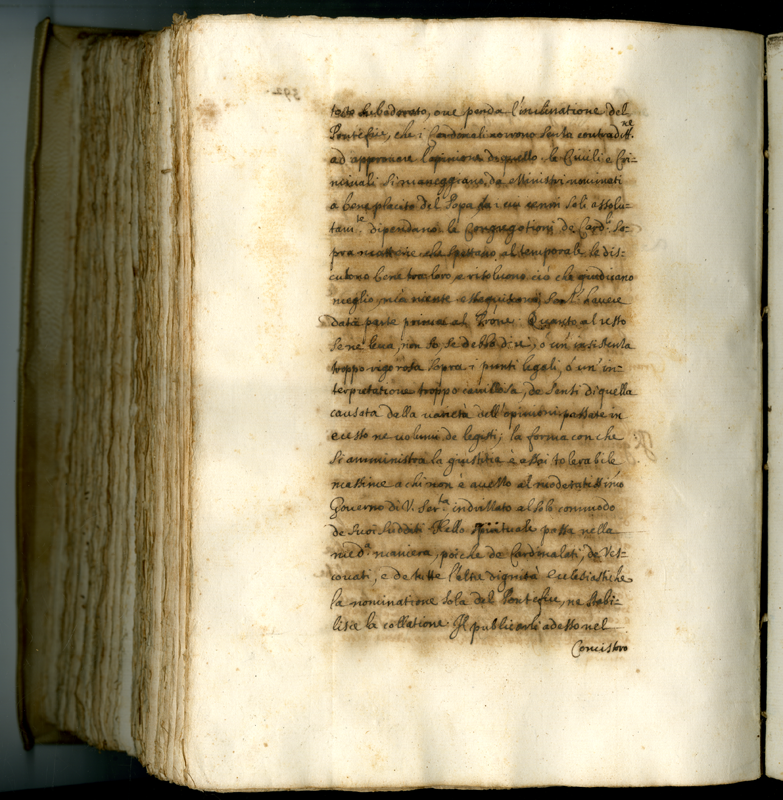 tosto subodorato, oue penda l'inclinatione del
Pontefice, che i Cardinali ricorrono senza contradit.ne
ad approuare l'opinione di quello. le Ciuili, e Cri-
minali si maneggiano da Ministri nominati
a bene placito del Papa da cui cenni soli assolu-
tam.te dipendano. le Congregationi de Card.li so-
pra mattine che spettano al temporale le dis-
cutono bene tra loro, e risoluono ciò che giudicano
meglio, mà niente essequiscono senza hauere
data parte prima al Prone. Quanto al resto
se ne leua, non so se debbo dire, ò un' insistenza
troppo rigorosa sopra i punti legali, ò un' in-
terpretatione troppo cauillosa, de sensi di quella
causata dalla varietà dell'opinioni passate in
questo ne uolumi de legisti; la forma con che
si amministra la giustitia è assai tolerabile
massime a chi non è auezzo al moderatissimo
Gouerno di V. Ser.ta indrizzato al solo commodo
de suoi sudditi. Nello spirituale passa nella
med.a maniera, poiche de Cardinalati, de Ves-
couati, e de tutte l'altre dignità Ecclesiastiche
la nominatione sola del Pontefice, ne stabi-
lisce la collatione. Il publicarli adesso nel
Concistoro